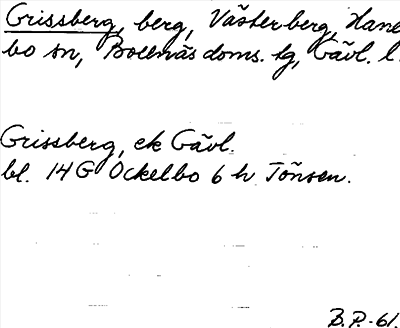 Grissberg, berg, Västerberg, Hane
bo sn, Bollnäs doms. tg, Gävl. l.
Grissberg, ek Gävl.
bl. 14G Ockelbo 6 h Tönsen.
B.P.-61.